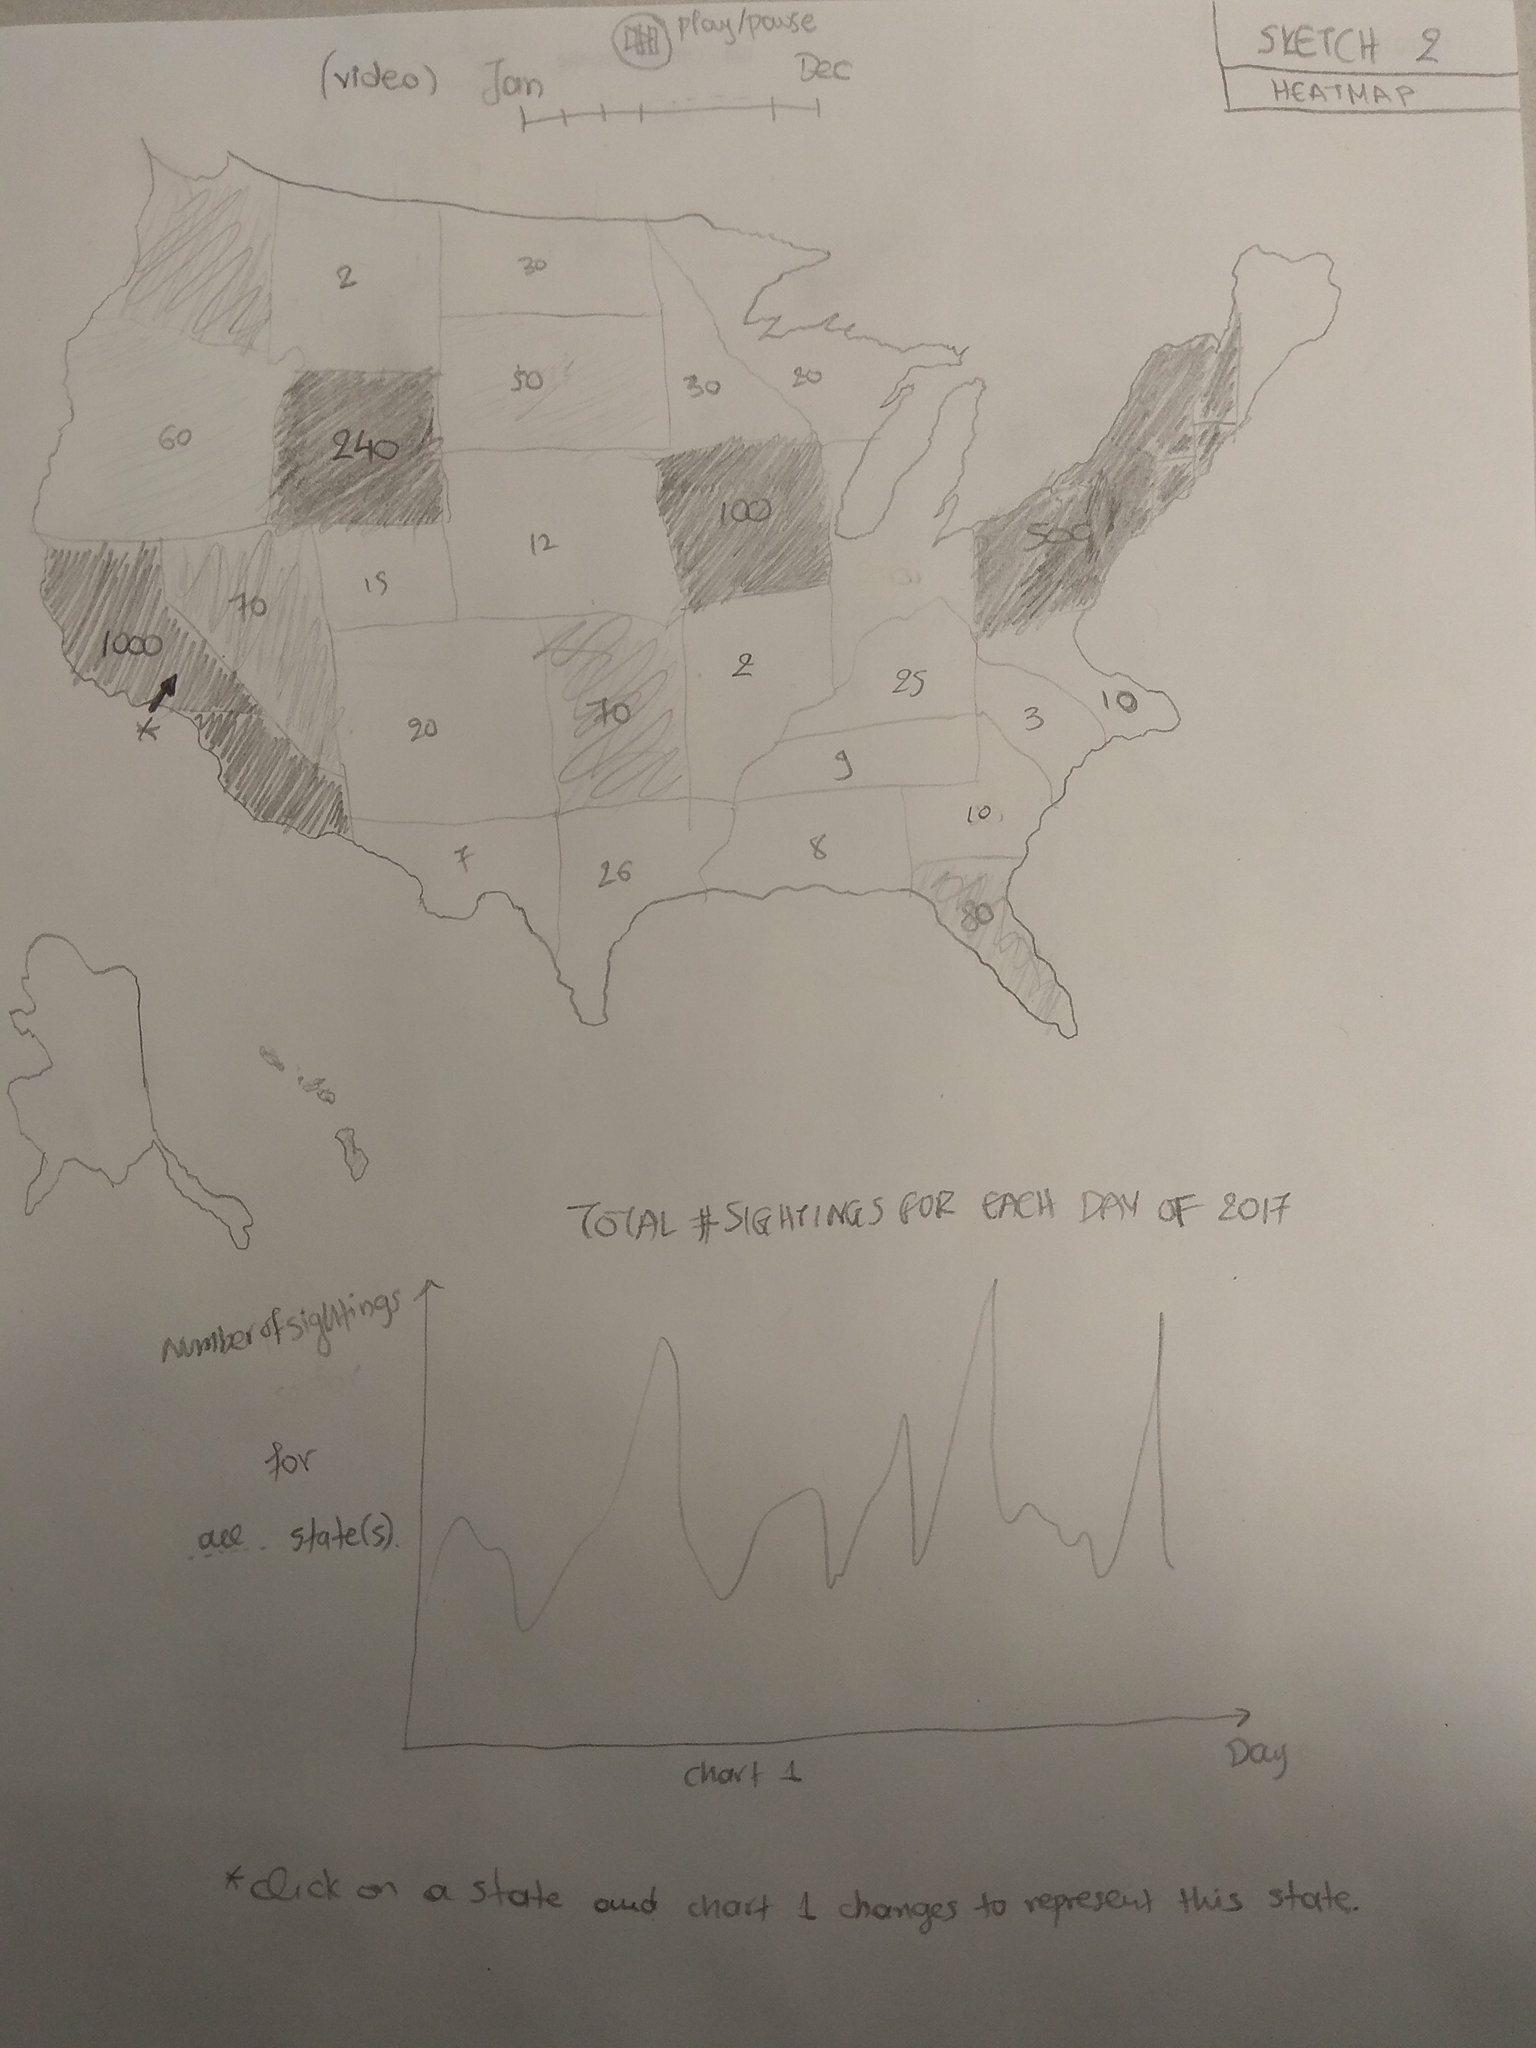 play/pause
SKETCH 2
HEATMAP
(video) Jan Dec
2
30
50
30
20
60
240
100
500
12
15
70
1000
*
2
25
10
3
70
20
9
10
8
7
26
80
TOTAL #SIGHTINGS FOR EACH DAY OF 2017
Number of sightings
for
all state(s).
Day
chart 1
*click on a state and chart 1 changes to represent this state.